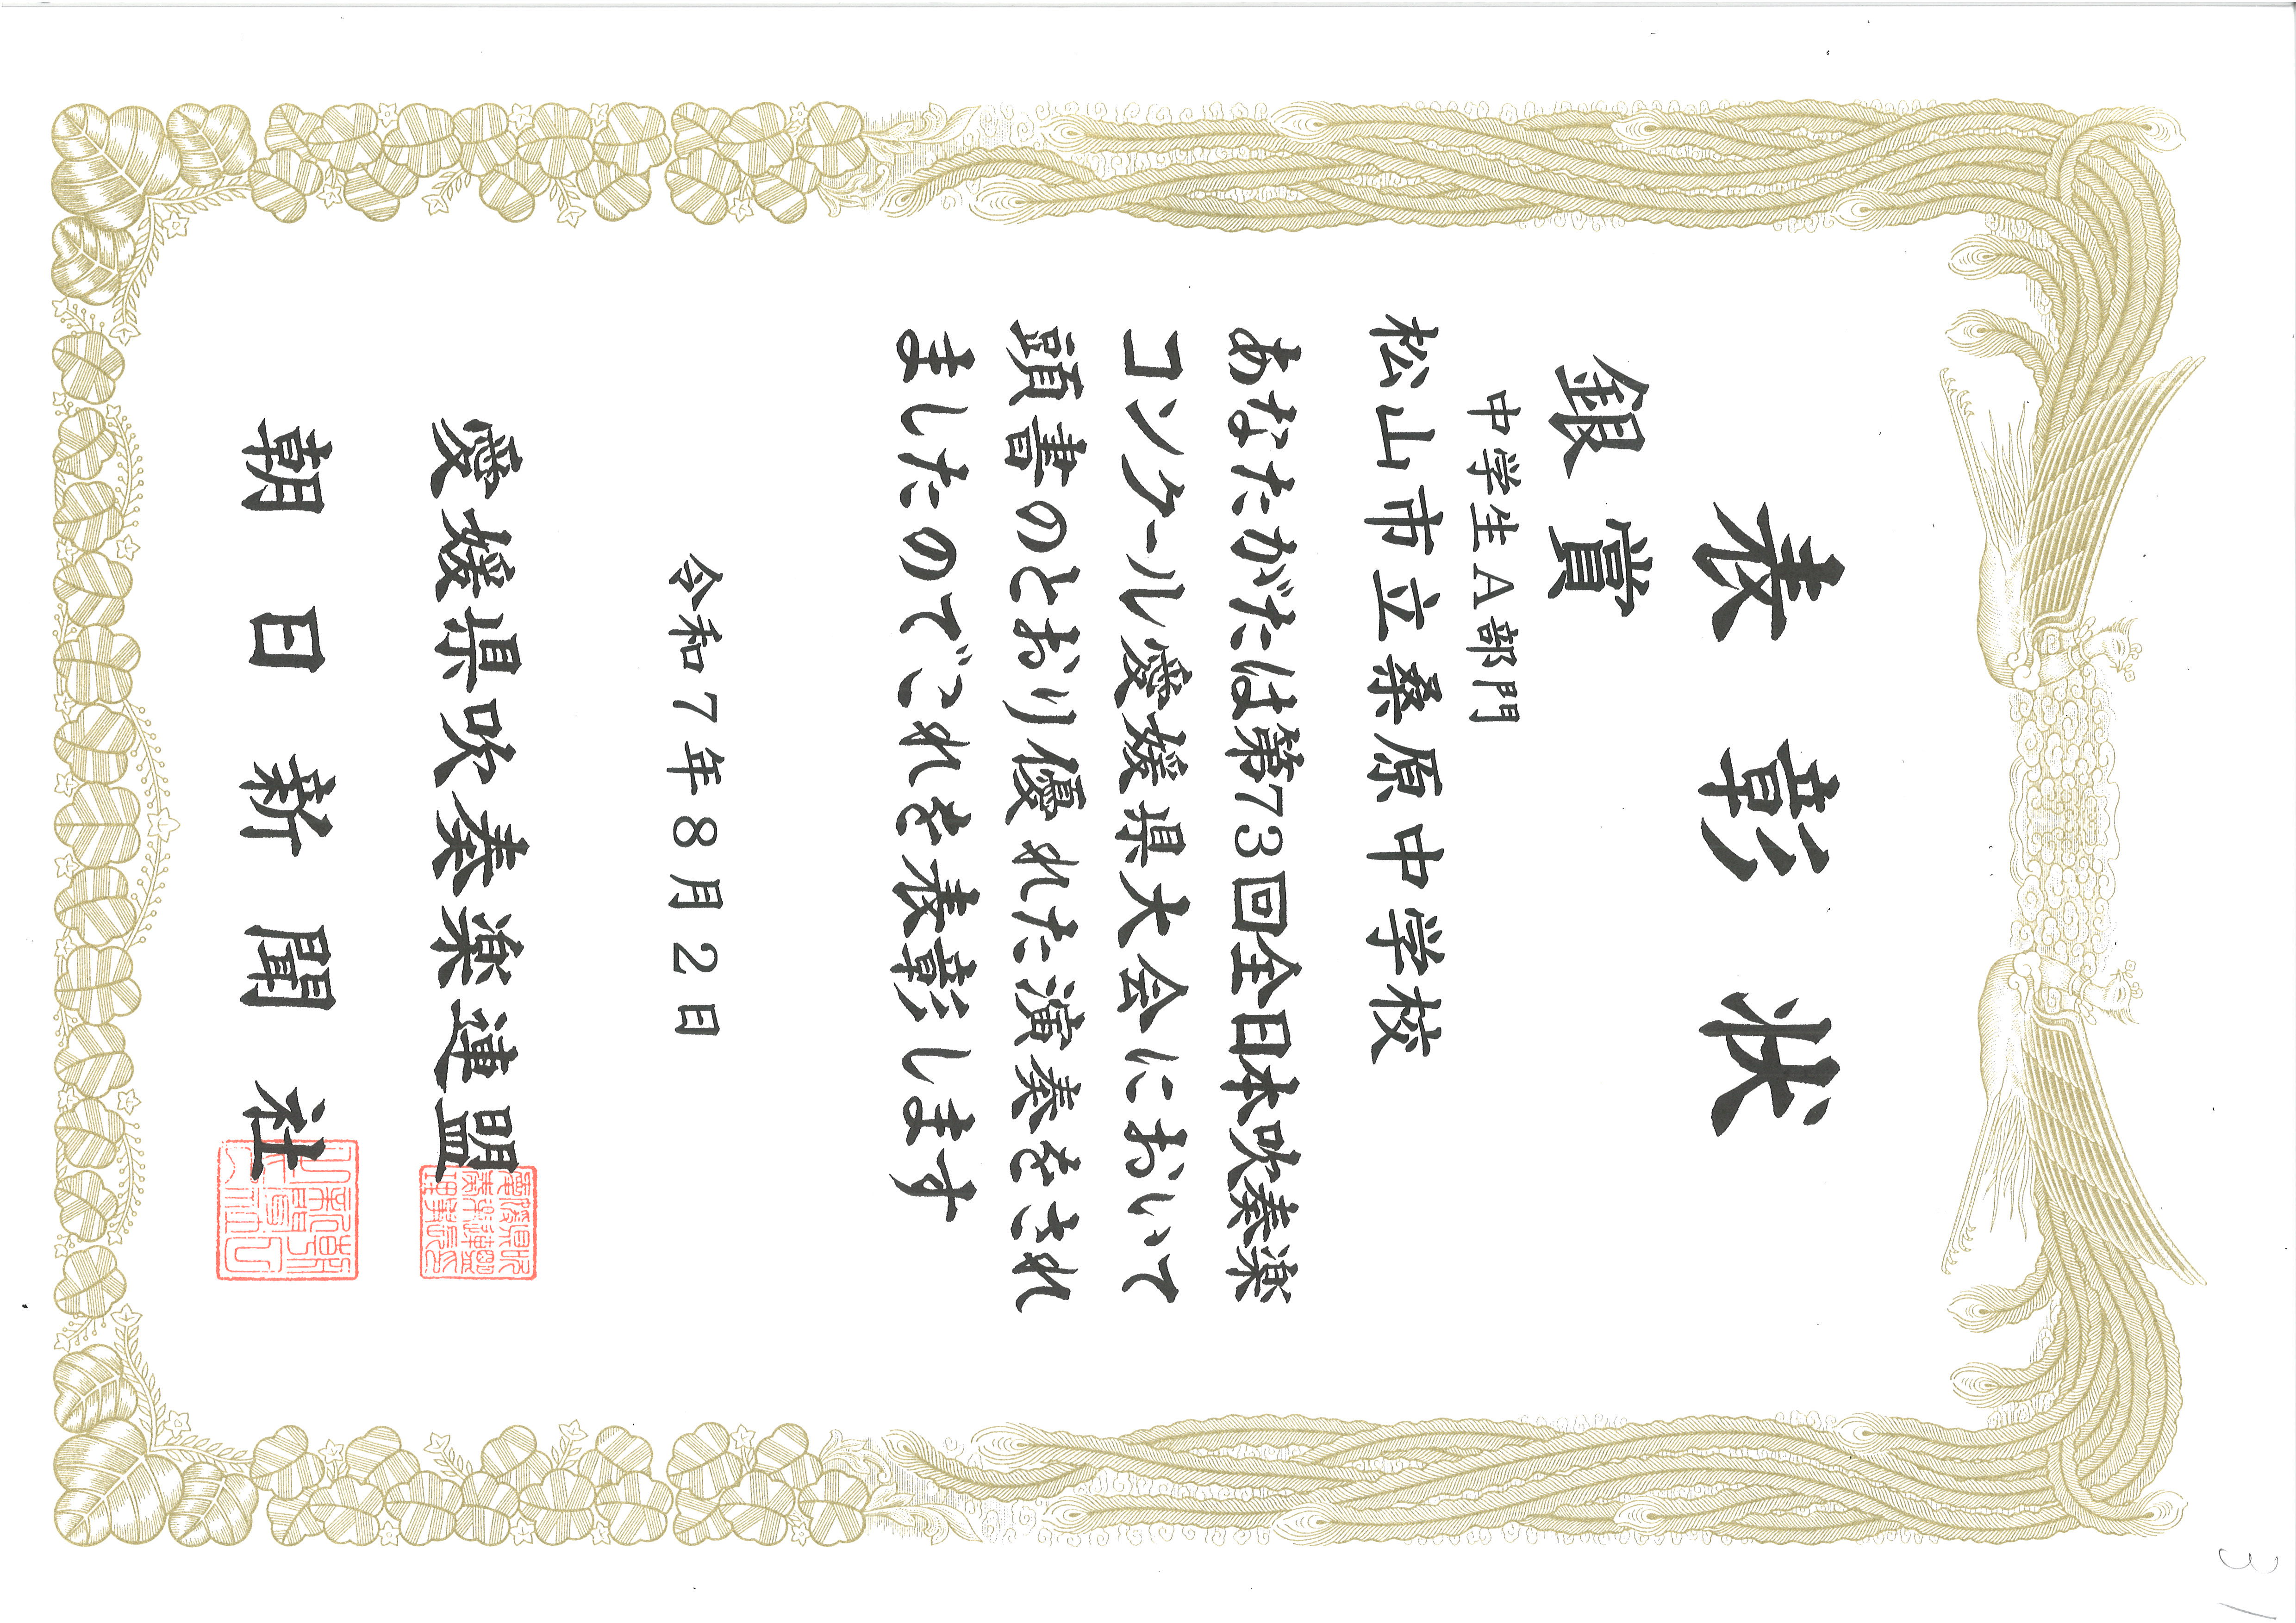 表彰状
銀賞
中学生A部門
松山市立桑原中学校
あなたがたは第73回全日本吹奏楽
コンクール愛媛県大会において
頭書のとおり優れた演奏をされ
ましたのでこれを表彰します
令和7年8月2日
愛媛県吹奏楽連盟
朝日新聞社